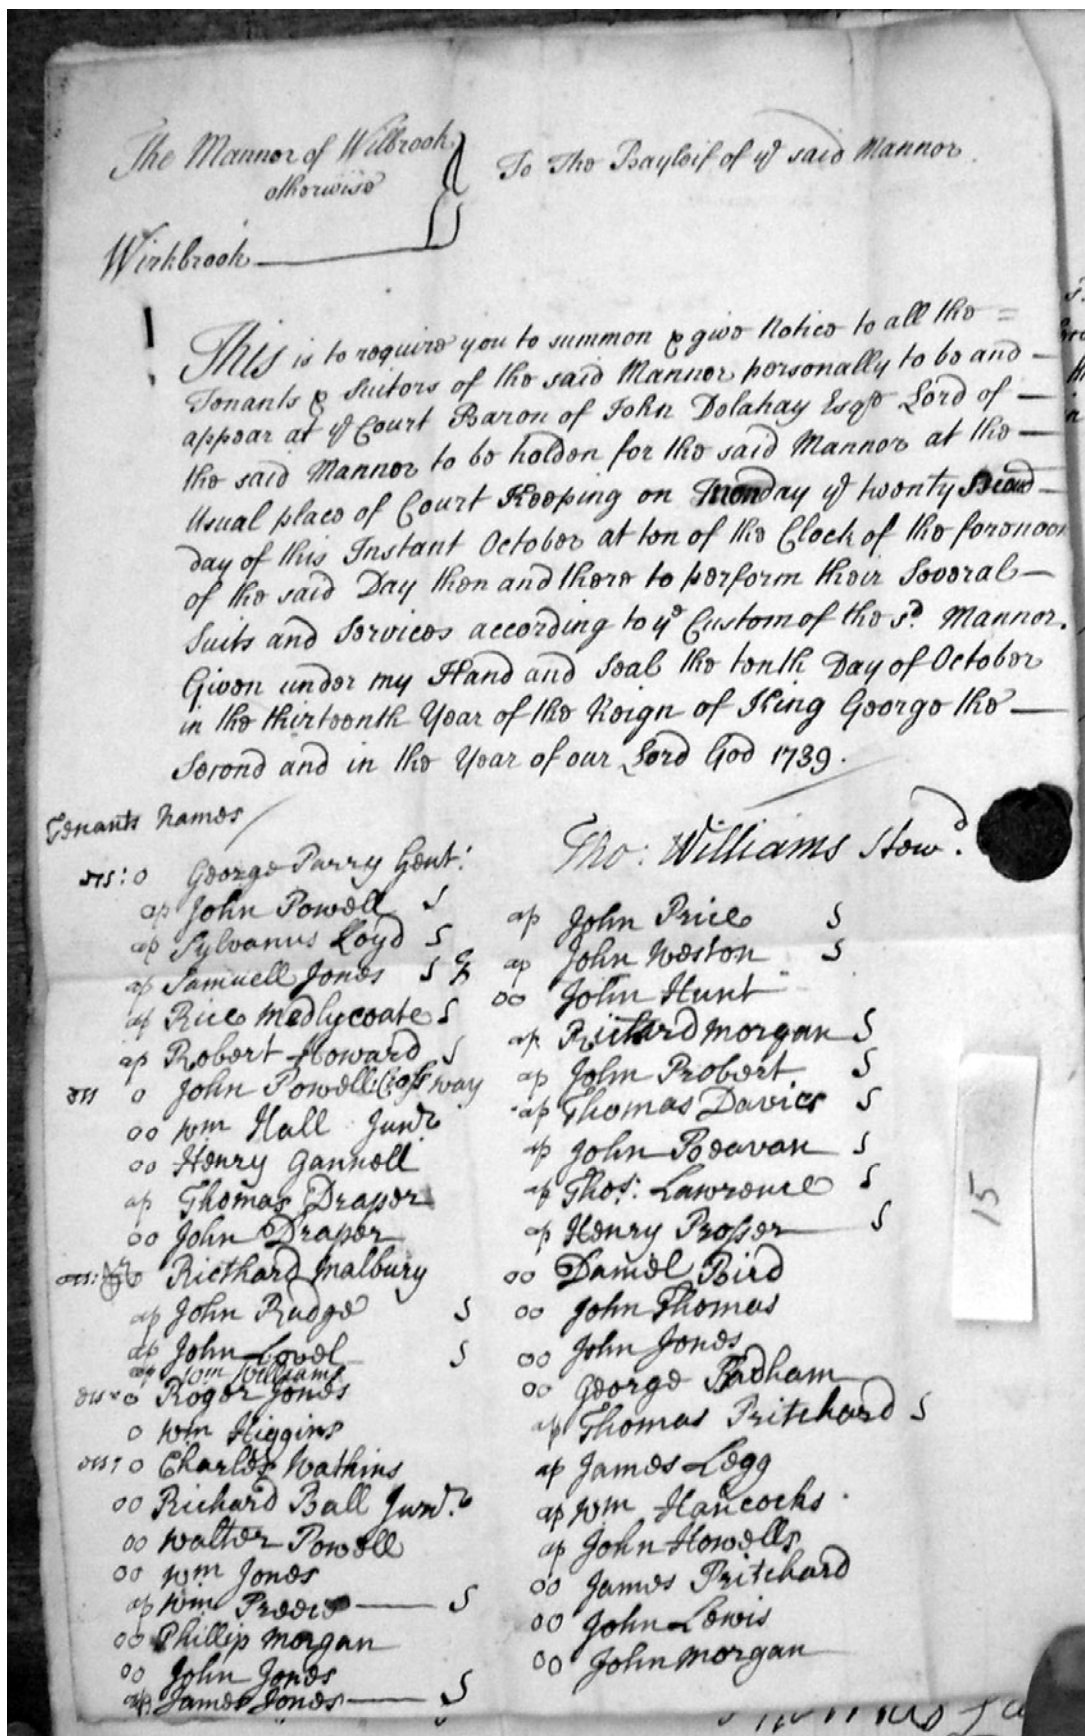 The Mannor of Wilbrook
otherwise
Wirkbrook
To The Bayleif of ye said Mannor
This is to require you to summon & give Notice to all the =
Tenants & Suitors of the said Mannor personally to be and —
appear at ye Court Baron of John Dolahay Esqr Lord of —
the said Mannor to be holden for the said Mannor at the —
Usual place of Court Keeping on Monday ye twenty Second —
day of this Instant October at ten of the Clock of the forenoon
of the said Day then and there to perform their Several —
Suits and Services according to ye Custom of the sd. Mannor.
Given under my Hand and Seal the tenth Day of October
in the thirteenth Year of the Reign of King George the —
Second and in the Year of our Lord God 1739.
Tho: Williams Stewd.
Tenants Names
ess: o George Parry Gent:
ap John Powell S
ap Sylvanus Loyd S
ap Samuell Jones S
ap Rice Medlycoate S
ap Robert Howard S
ess o John Powell: Cross way
oo Wm Hall Junr
oo Henry Gannell
ap Thomas Draper
oo John Draper
ess: Richard Malbury
ap John Rudge S
ap John Lovel S
ap Wm Williams
ess: o Roger Jones
o Wm Higgins
ess: o Charles Watkins
oo Richard Ball Junr.
oo Walter Powell
oo Wm Jones
ap Wm Preece — S
oo Phillip Morgan
oo John Jones
ap James Jones — S
ap John Price S
ap John Weston S
oo John Hunt
ap Richard Morgan S
ap John Probert S
ap Thomas Davies S
ap John Beavan S
ap Thos: Lawrence S
ap Henry Prosser S
oo Daniel Bird
oo John Thomas
oo John Jones
oo George Badham
ap Thomas Pritchard S
ap James Legg
ap Wm Hancocks
ap John Howells
oo James Pritchard
oo John Lewis
oo John Morgan
15